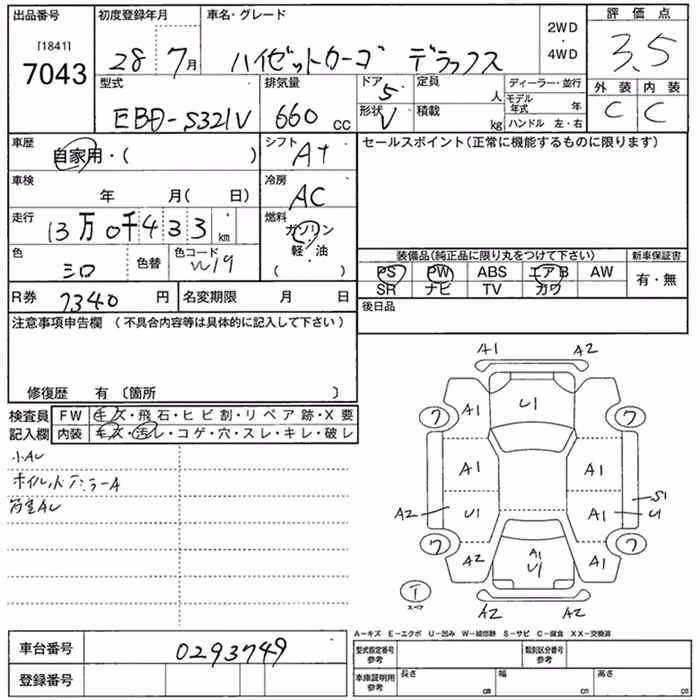 出品番号 初度登録年月 車名・グレード 2WD ・ 4WD 評価点
[1841] 7043 28 7月 ハイゼットカーゴ デラックス 3.5
型式 排気量 ドア 5 定員 人 ディーラー・並行 外装 内装
EBD-S321V 660 cc 形状 V 積載 kg モデル年式 年 C C
ハンドル 左・右
車歴 自家用・( ) シフト AT セールスポイント(正常に機能するものに限ります)
車検 年 月( 日) 冷房 AC
走行 13万0千433km 燃料 ガソリン 軽・油 ( )
色 シロ 色替 色コード W19 装備品(純品に限り丸をつけて下さい) 新車保証書
PS PW ABS エアB AW 有・無
SR ナビ TV カワ
R券 7340円 名変期限 月 日 後日品
注意事項申告欄 (不具合内容等は具体的に記入して下さい)
修復歴 有 〔箇所 〕
検査員 FW キズ・飛石・ヒビ割・リペア跡・X要
記入欄 内装 キズ・汚レ・コゲ・穴・スレ・キレ・破レ
小AU
A1 A2
ワ A1 U1 ワ
A1 A1
A2 U1 A1 U1 S1
ワ A2 A1 U1 A1 ワ
T スペア
A2 A2
A-キズ E-エクボ U-凹み W-補修跡 S-サビ C-腐食 XX-交換済
車台番号 0293749 型式指定番号 参考 類別区分番号 参考
登録番号 車庫証明用 参考 長さ cm 幅 cm 高さ cm